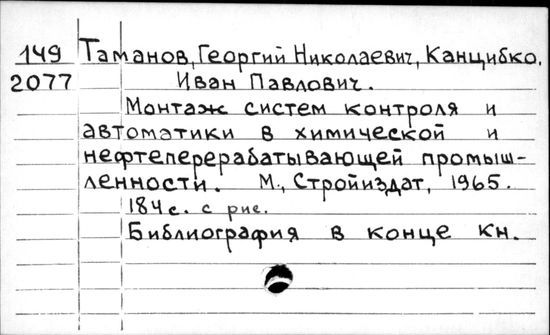 149 Таманов, Георгий Николаевич, Канцибко,
2077 Иван Павлович.
Монтаж систем контроля и
автоматики в химической и
нефтеперерабатывающей промыш-
ленности. М., Стройиздат, 1965.
184 с. с рис.
Библиография в конце кн.